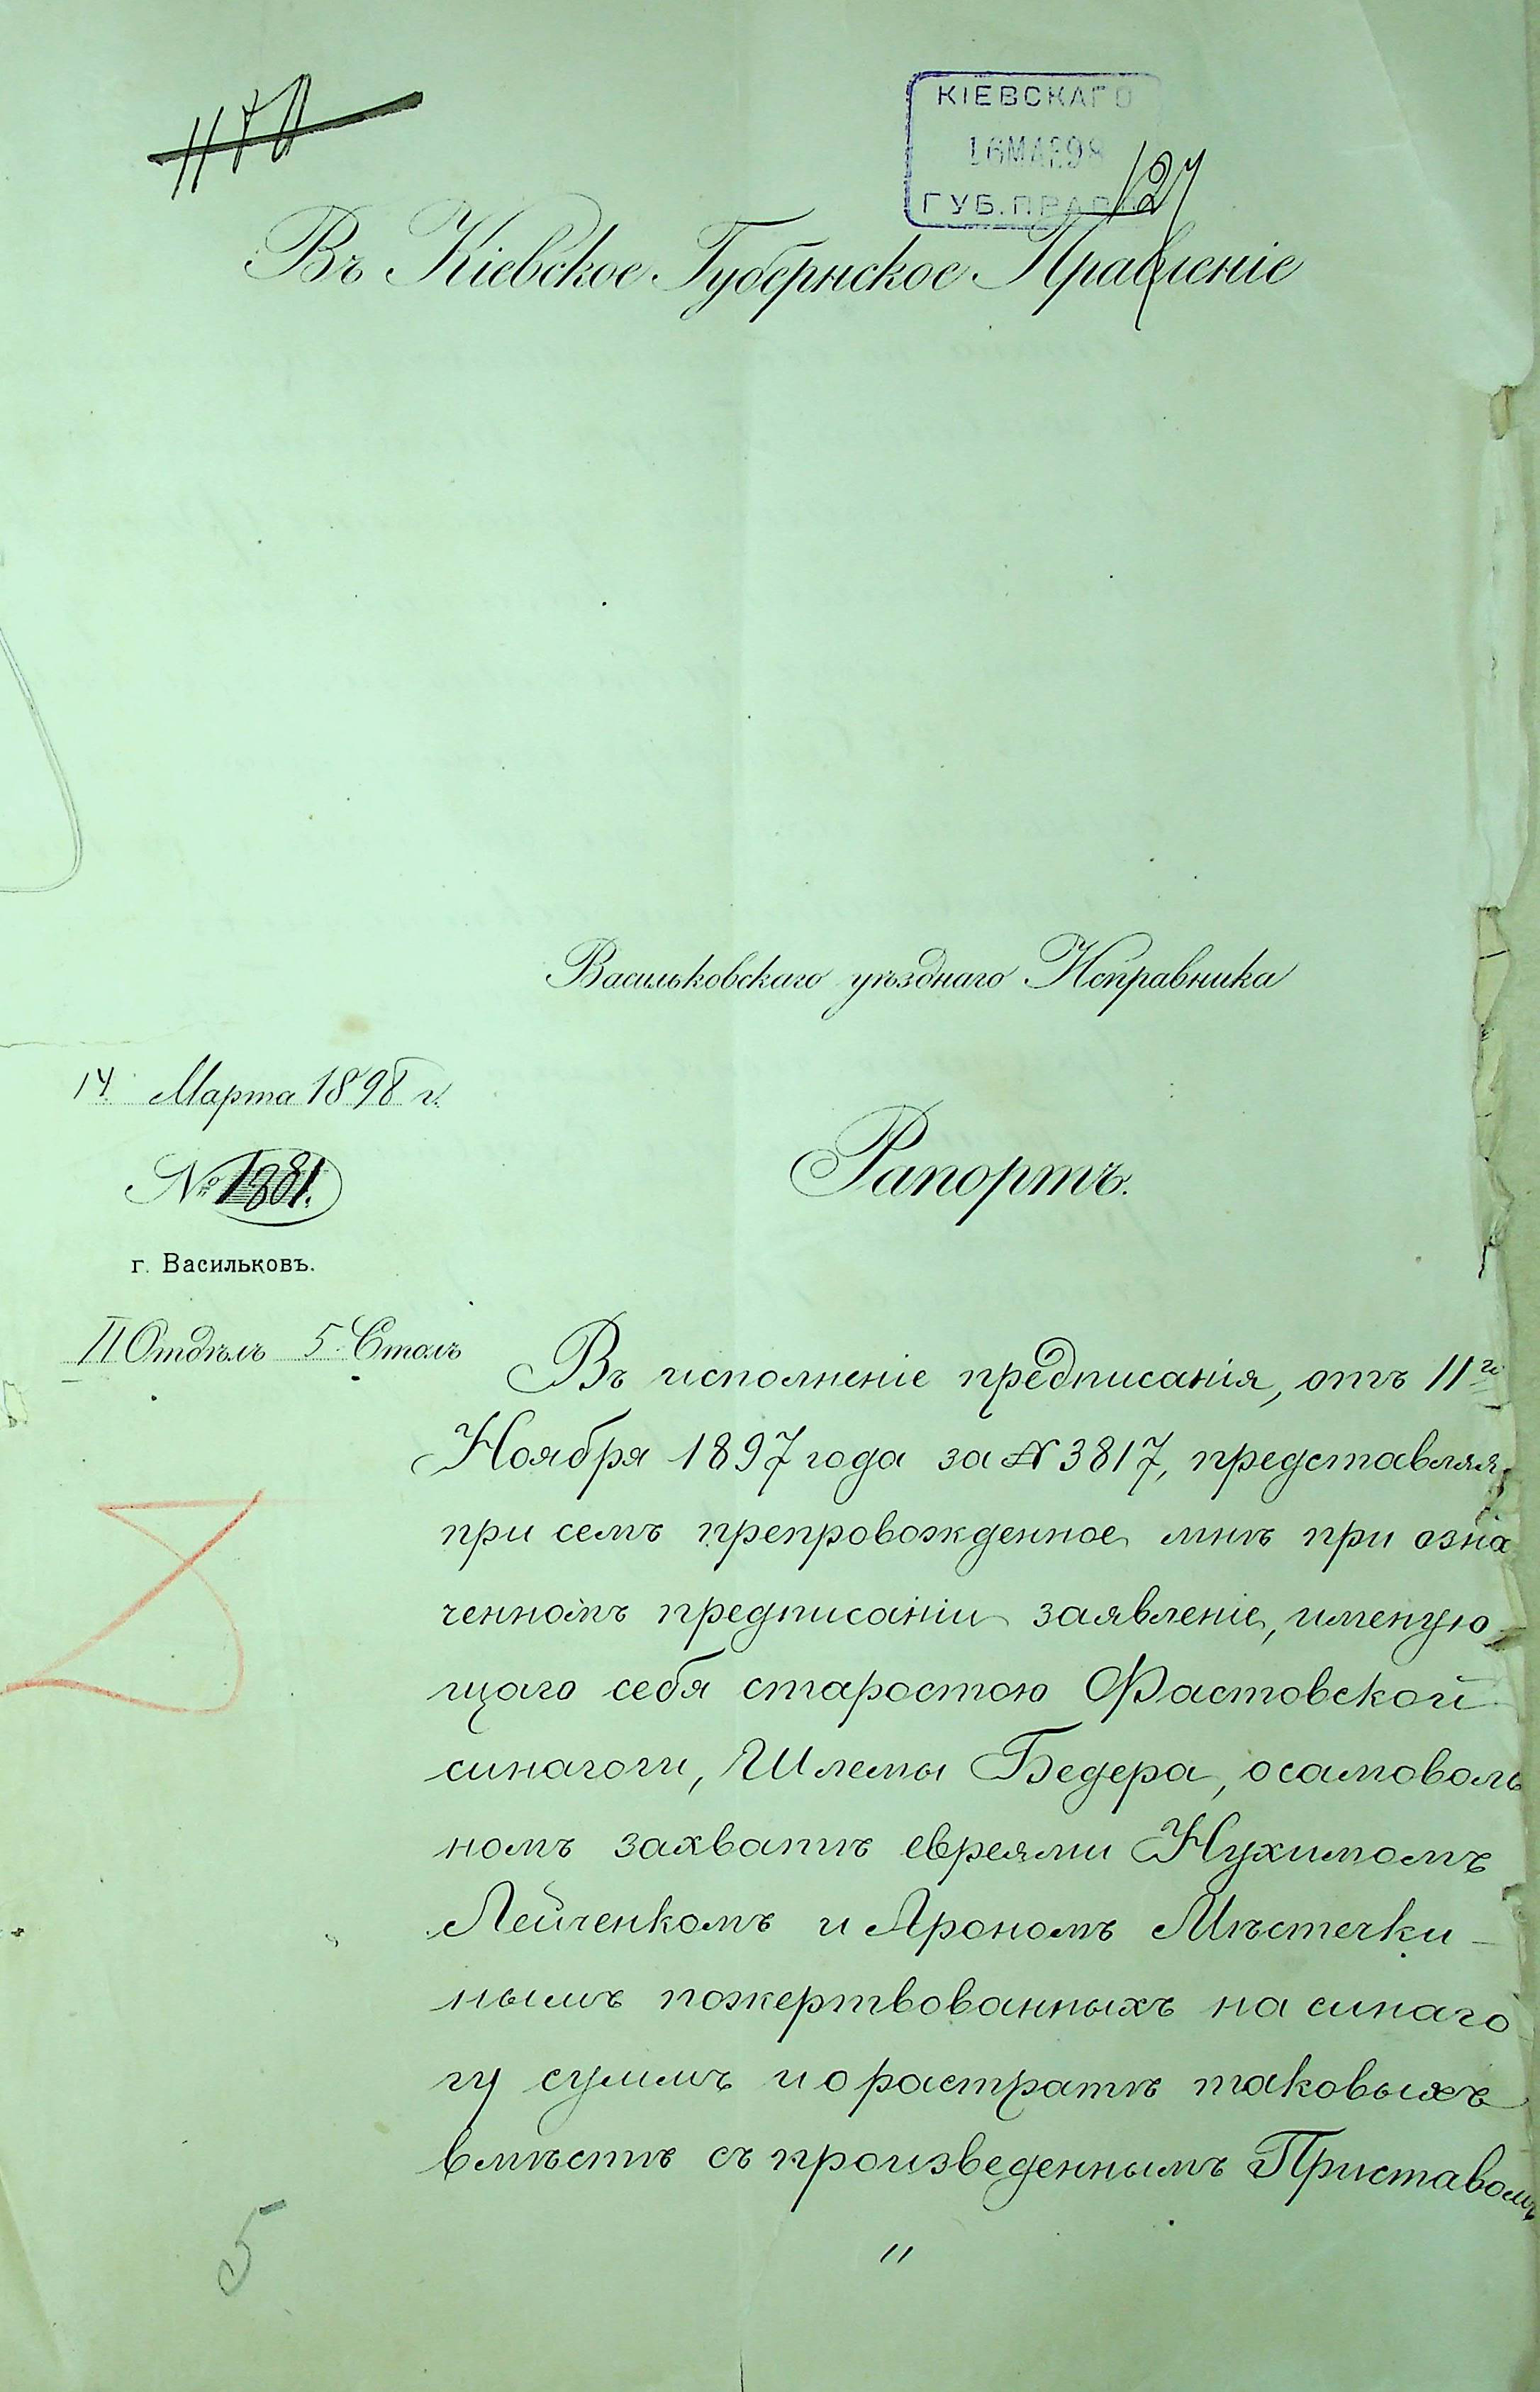 КІЕВСКАГО
16 МАР 98
ГУБ. ПРАВ
127
Въ Кіевское Губернское Правленіе
Васильковскаго уѣзднаго Исправника
14 Марта 1898 г.
№ 1381.
г. Васильковъ.
II Отдѣлъ 5 Столъ
Рапортъ.
Въ исполненіе предписанія, отъ 11го
Ноября 1897 года за № 3817, представляя
при семъ препровожденное мнѣ при озна
ченномъ предписаніи заявленіе, именую
щаго себя старостою Фастовской
синагоги, Шлемы Бедера, о самоволь
номъ захватѣ евреями Нухимомъ
Лейченкомъ и Арономъ Мѣстечки-
нымъ пожертвованныхъ на синаго
гу суммъ и о растратѣ таковыхъ
вмѣстѣ съ произведеннымъ Приставомъ
"
5